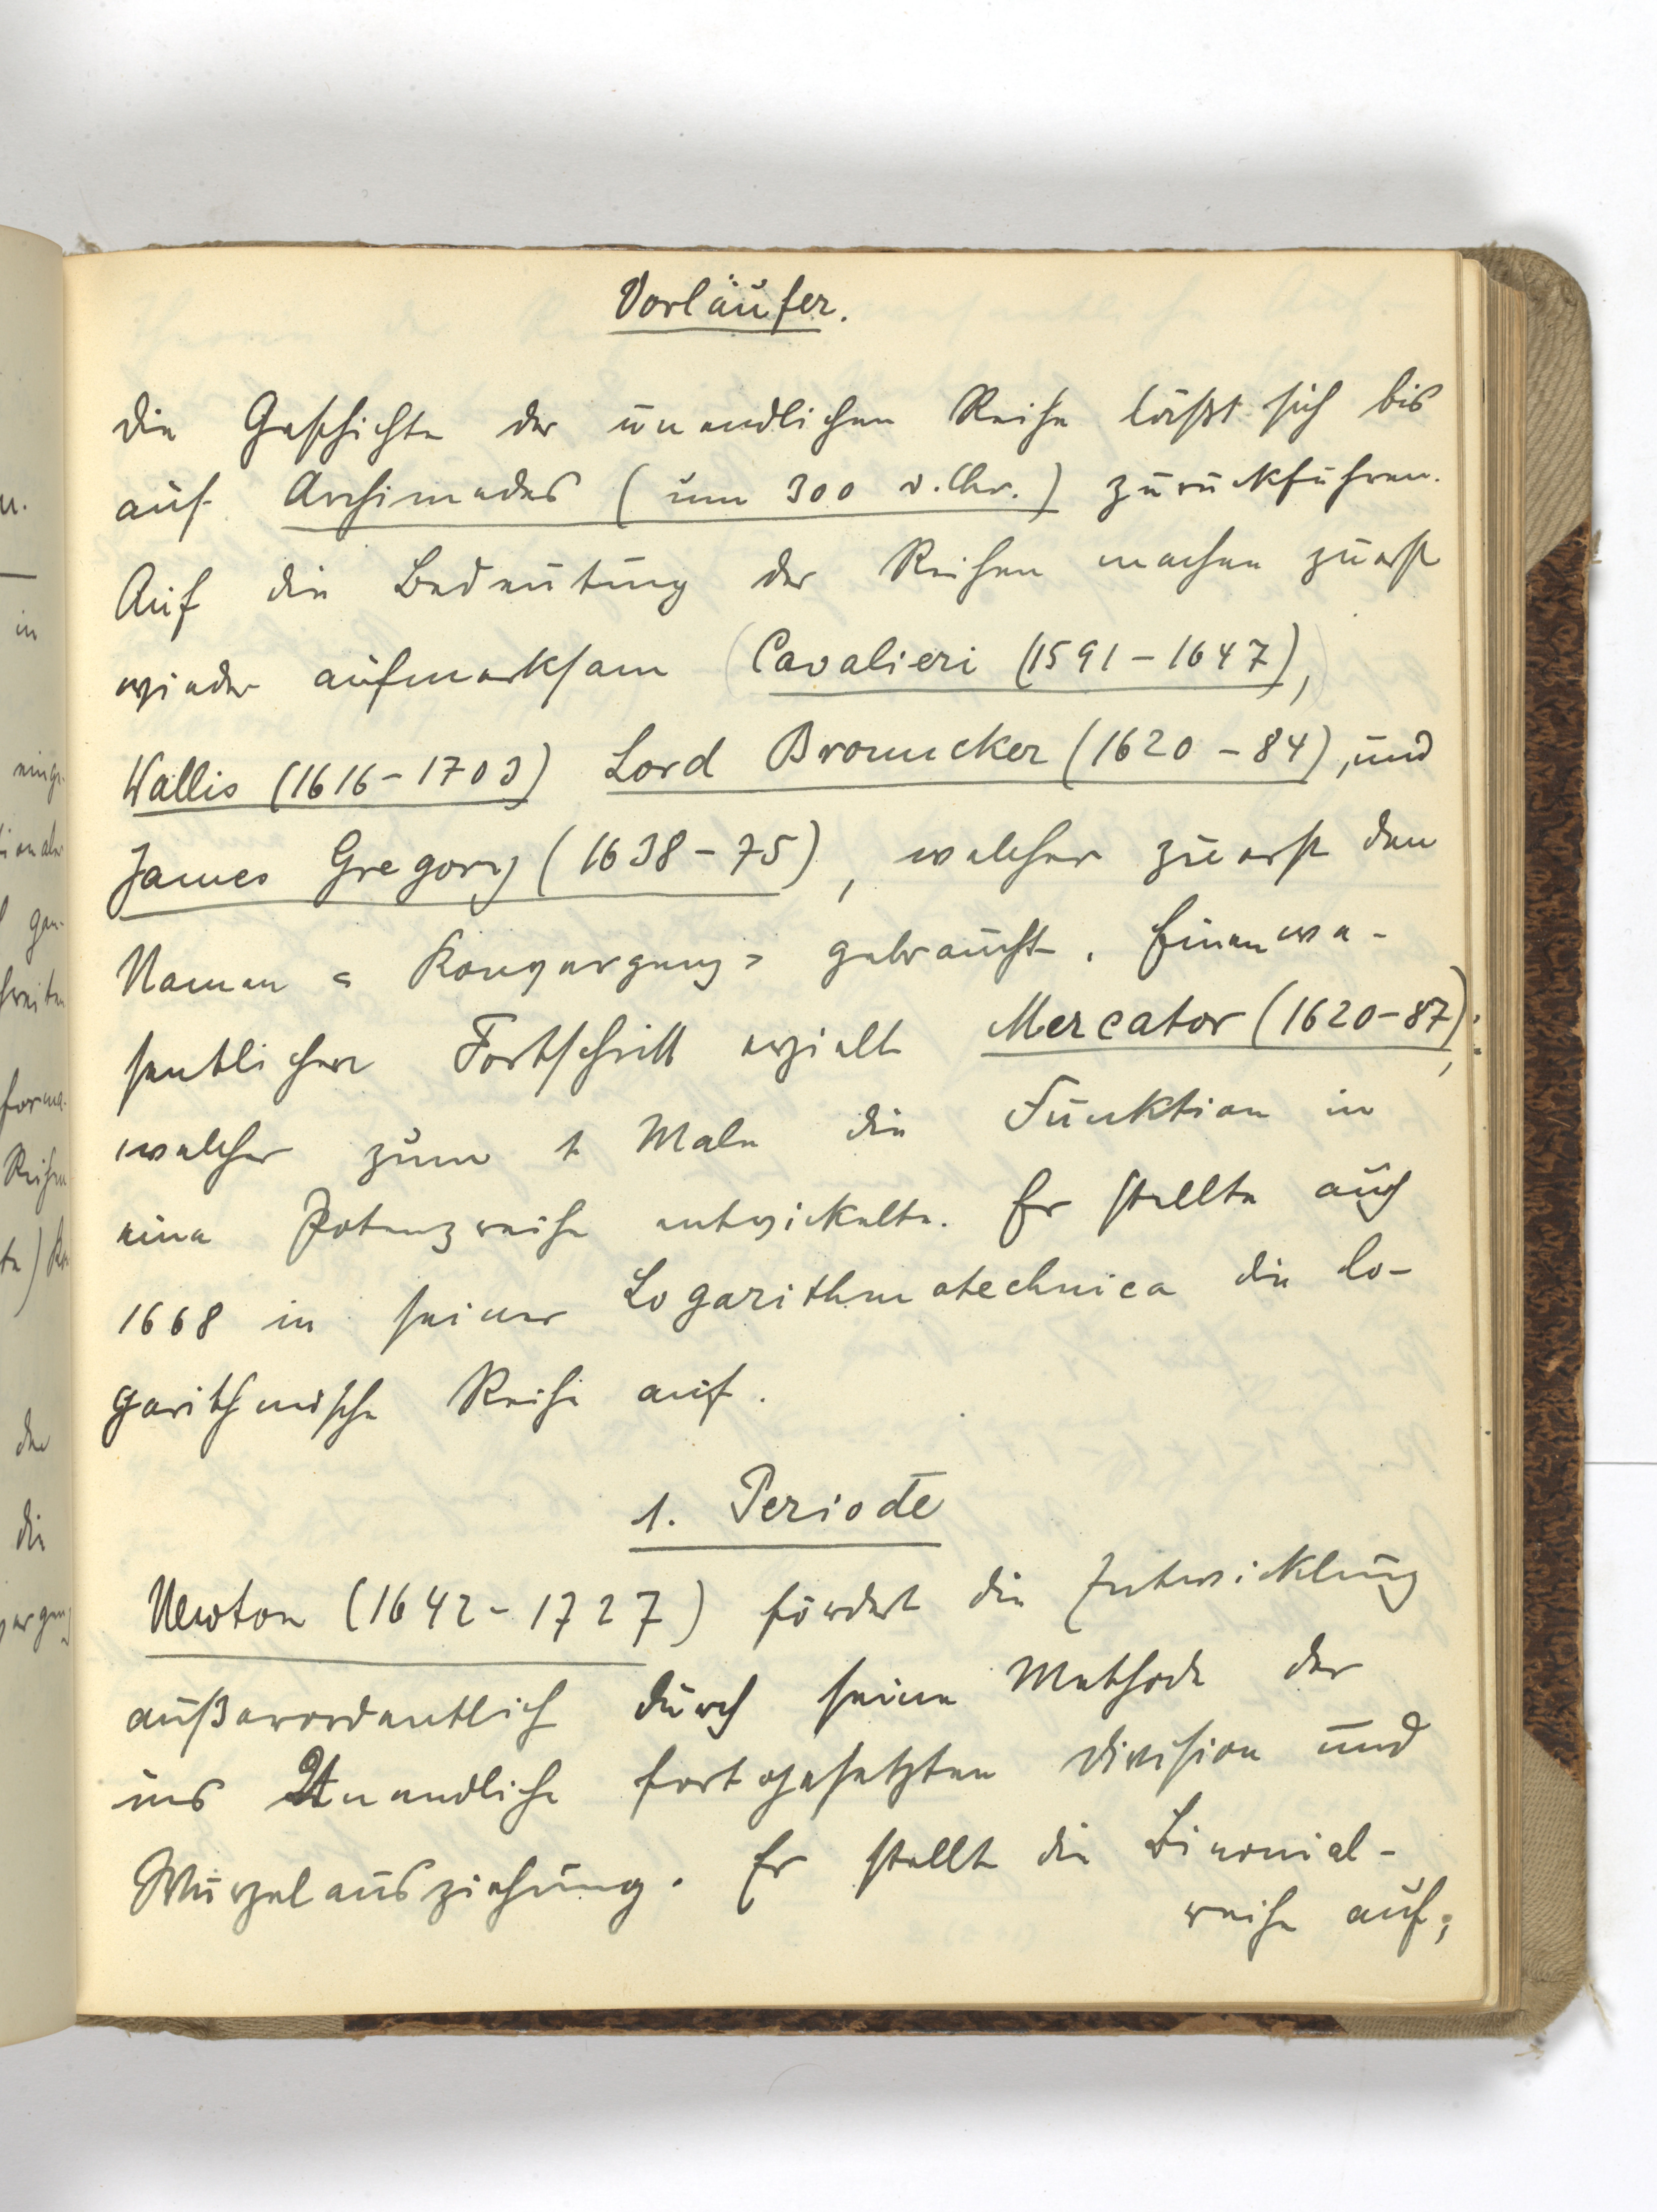 Vorläufer.
Die Geschichte der unendlichen Reihe läßt sich bis
auf Archimedes (um 300 v. Chr.) zurückführen.
Auf die Bedeutung der Reihen machen zuerst
wieder aufmerksam (Cavalieri (1591-1647),)
Wallis (1616-1703) Lord Brouncker (1620-84), und
James Gregory (1638-75), welcher zuerst den
Namen "Konvergenz" gebraucht. Einen we-
sentlichen Fortschritt erzielt Mercator (1620-87);
welcher zum 1 Male die Funktion in
eine Potenzreihe entwickelte. Er stellte auch
1668 in seiner Logarithmotechnica die lo-
garithmische Reihe auf.
1. Periode
Newton (1642-1727) fördert die Entwicklung
außerordentlich durch seine Methode der
ins Unendliche fortgesetzten Division und
Wurzelausziehung. Er stellt die Binomial-
reihe auf;
n.
in
Reihen
die